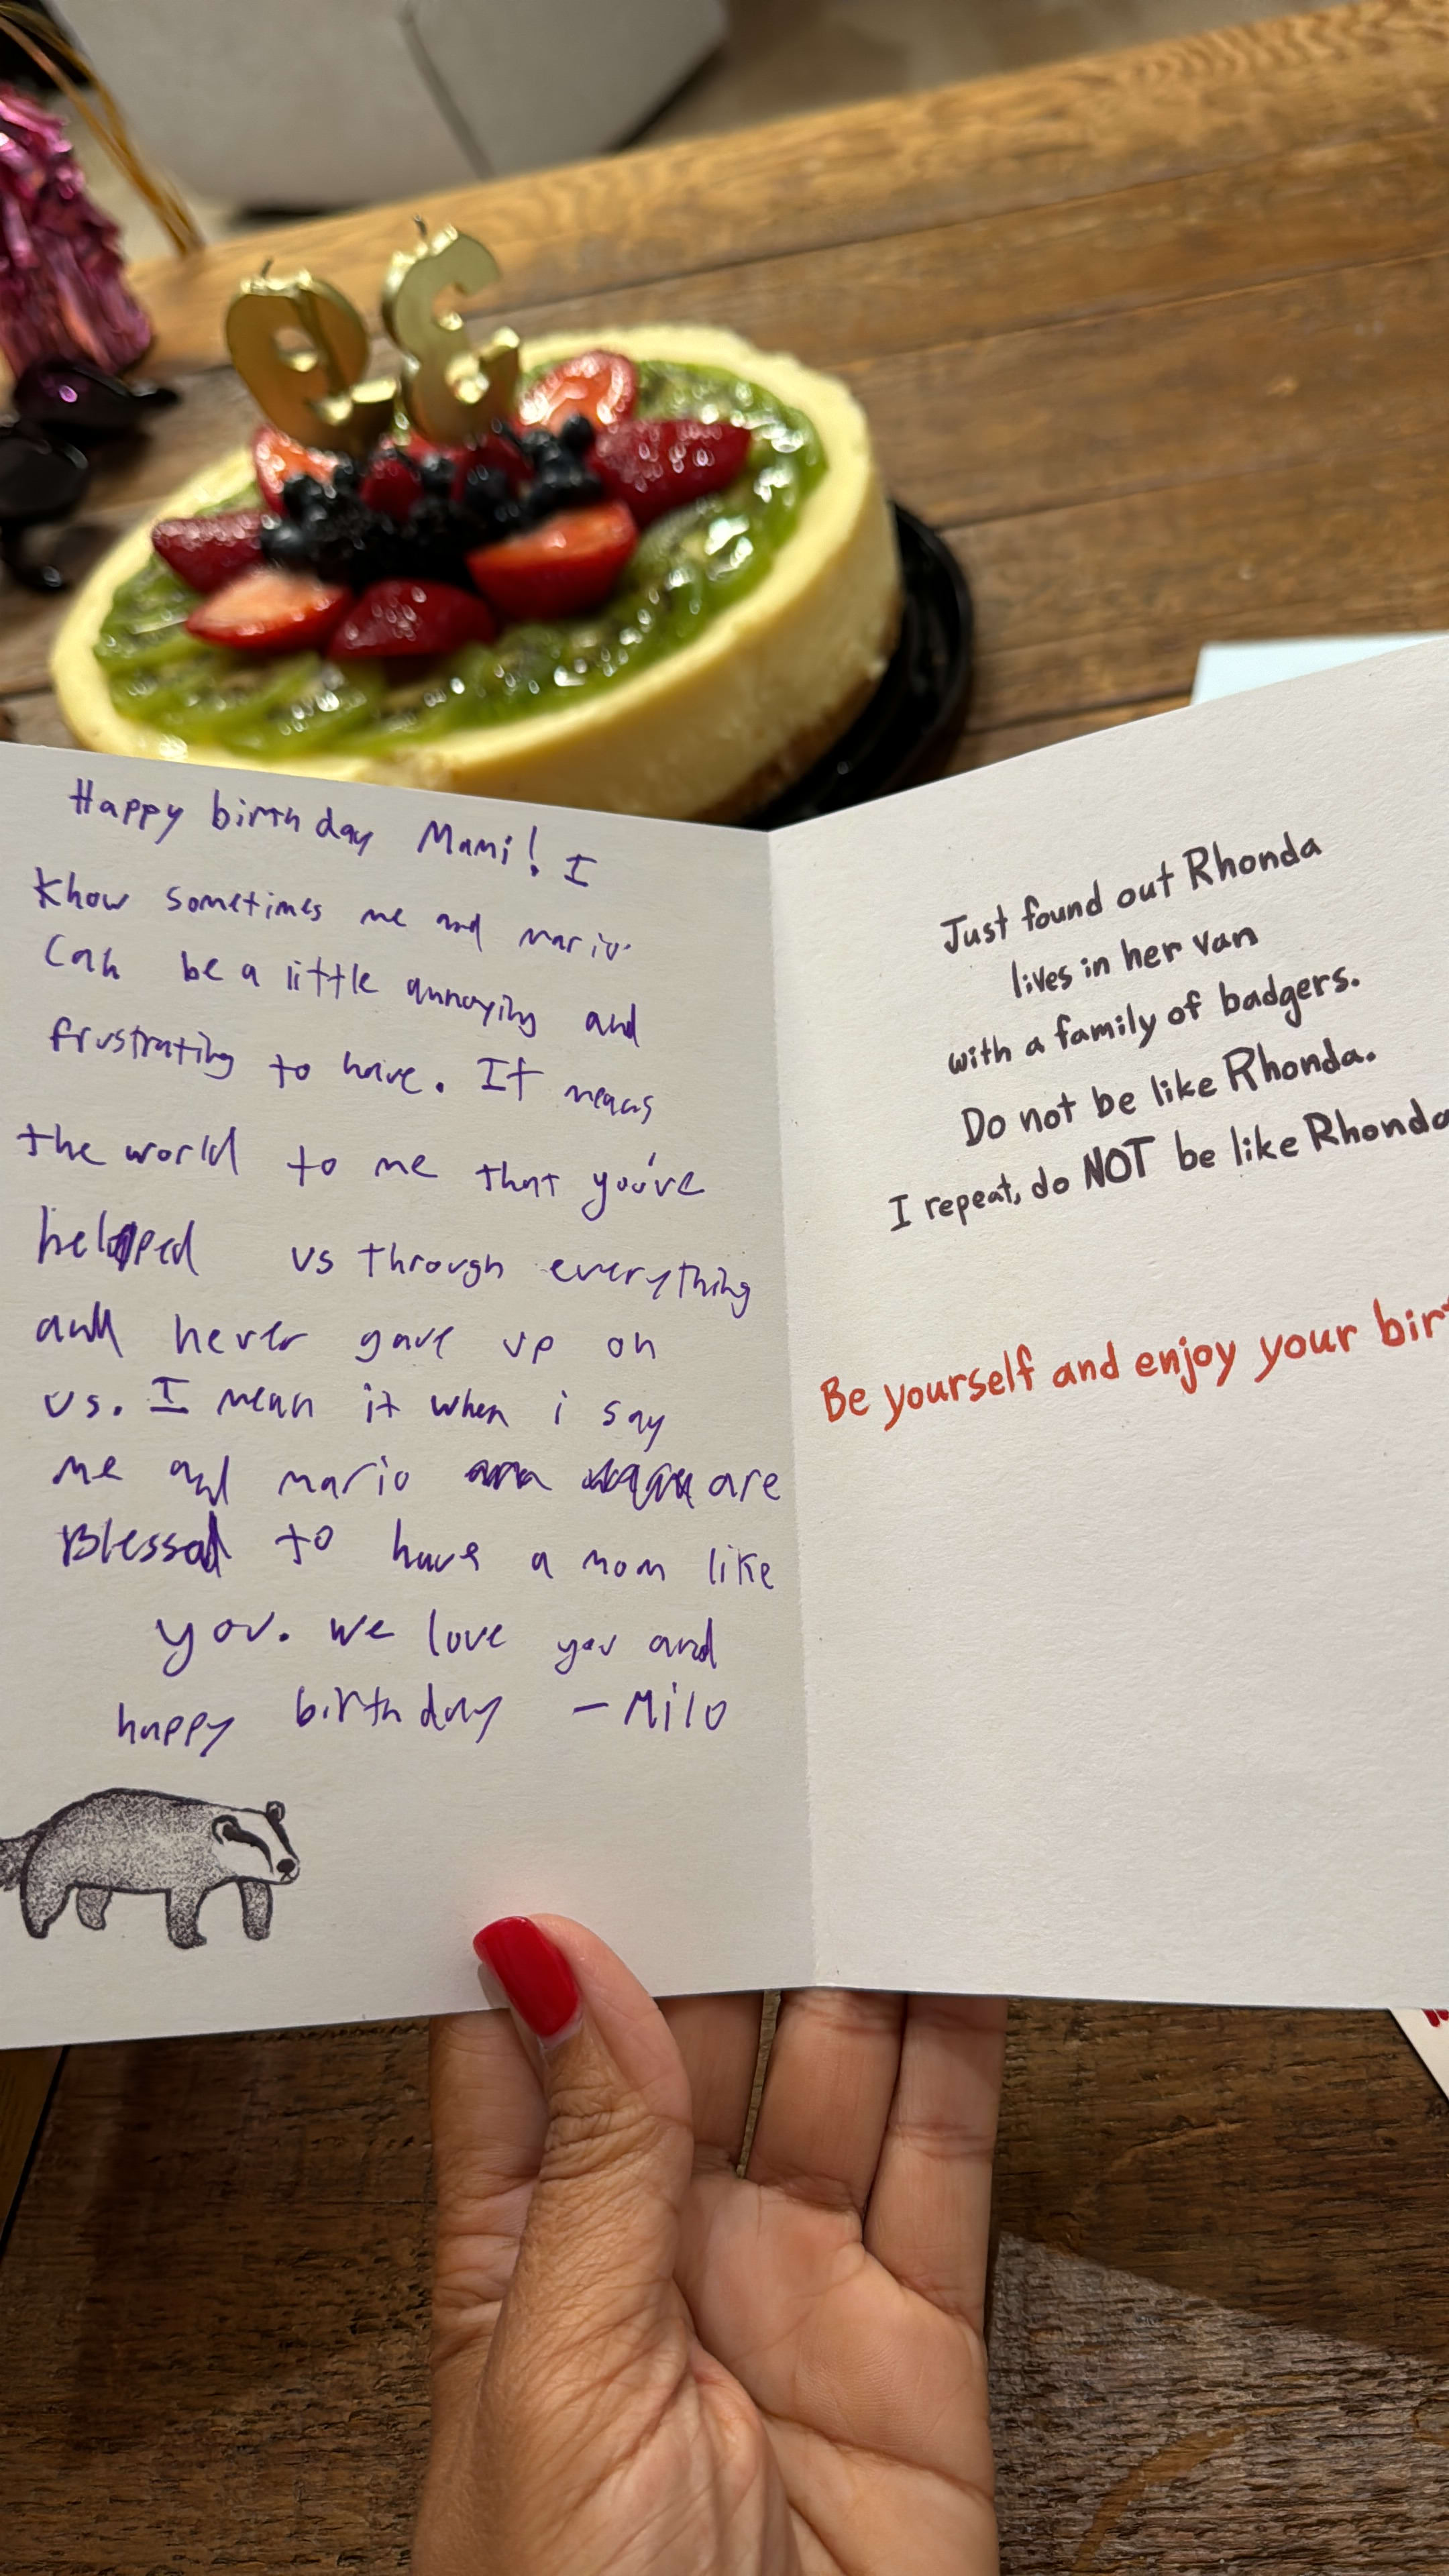 Happy birthday Mami! I
Know sometimes me and mario
Can be a little annoying and
frustrating to have. It means
the world to me that you've
helped us through everything
and never gave up on
us. I mean it when i say
me and mario are
Blessed to have a mom like
you. We love you and
happy birthday - Milo
Just found out Rhonda
lives in her van
with a family of badgers.
Do not be like Rhonda.
I repeat, do NOT be like Rhonda
Be yourself and enjoy your birt
39